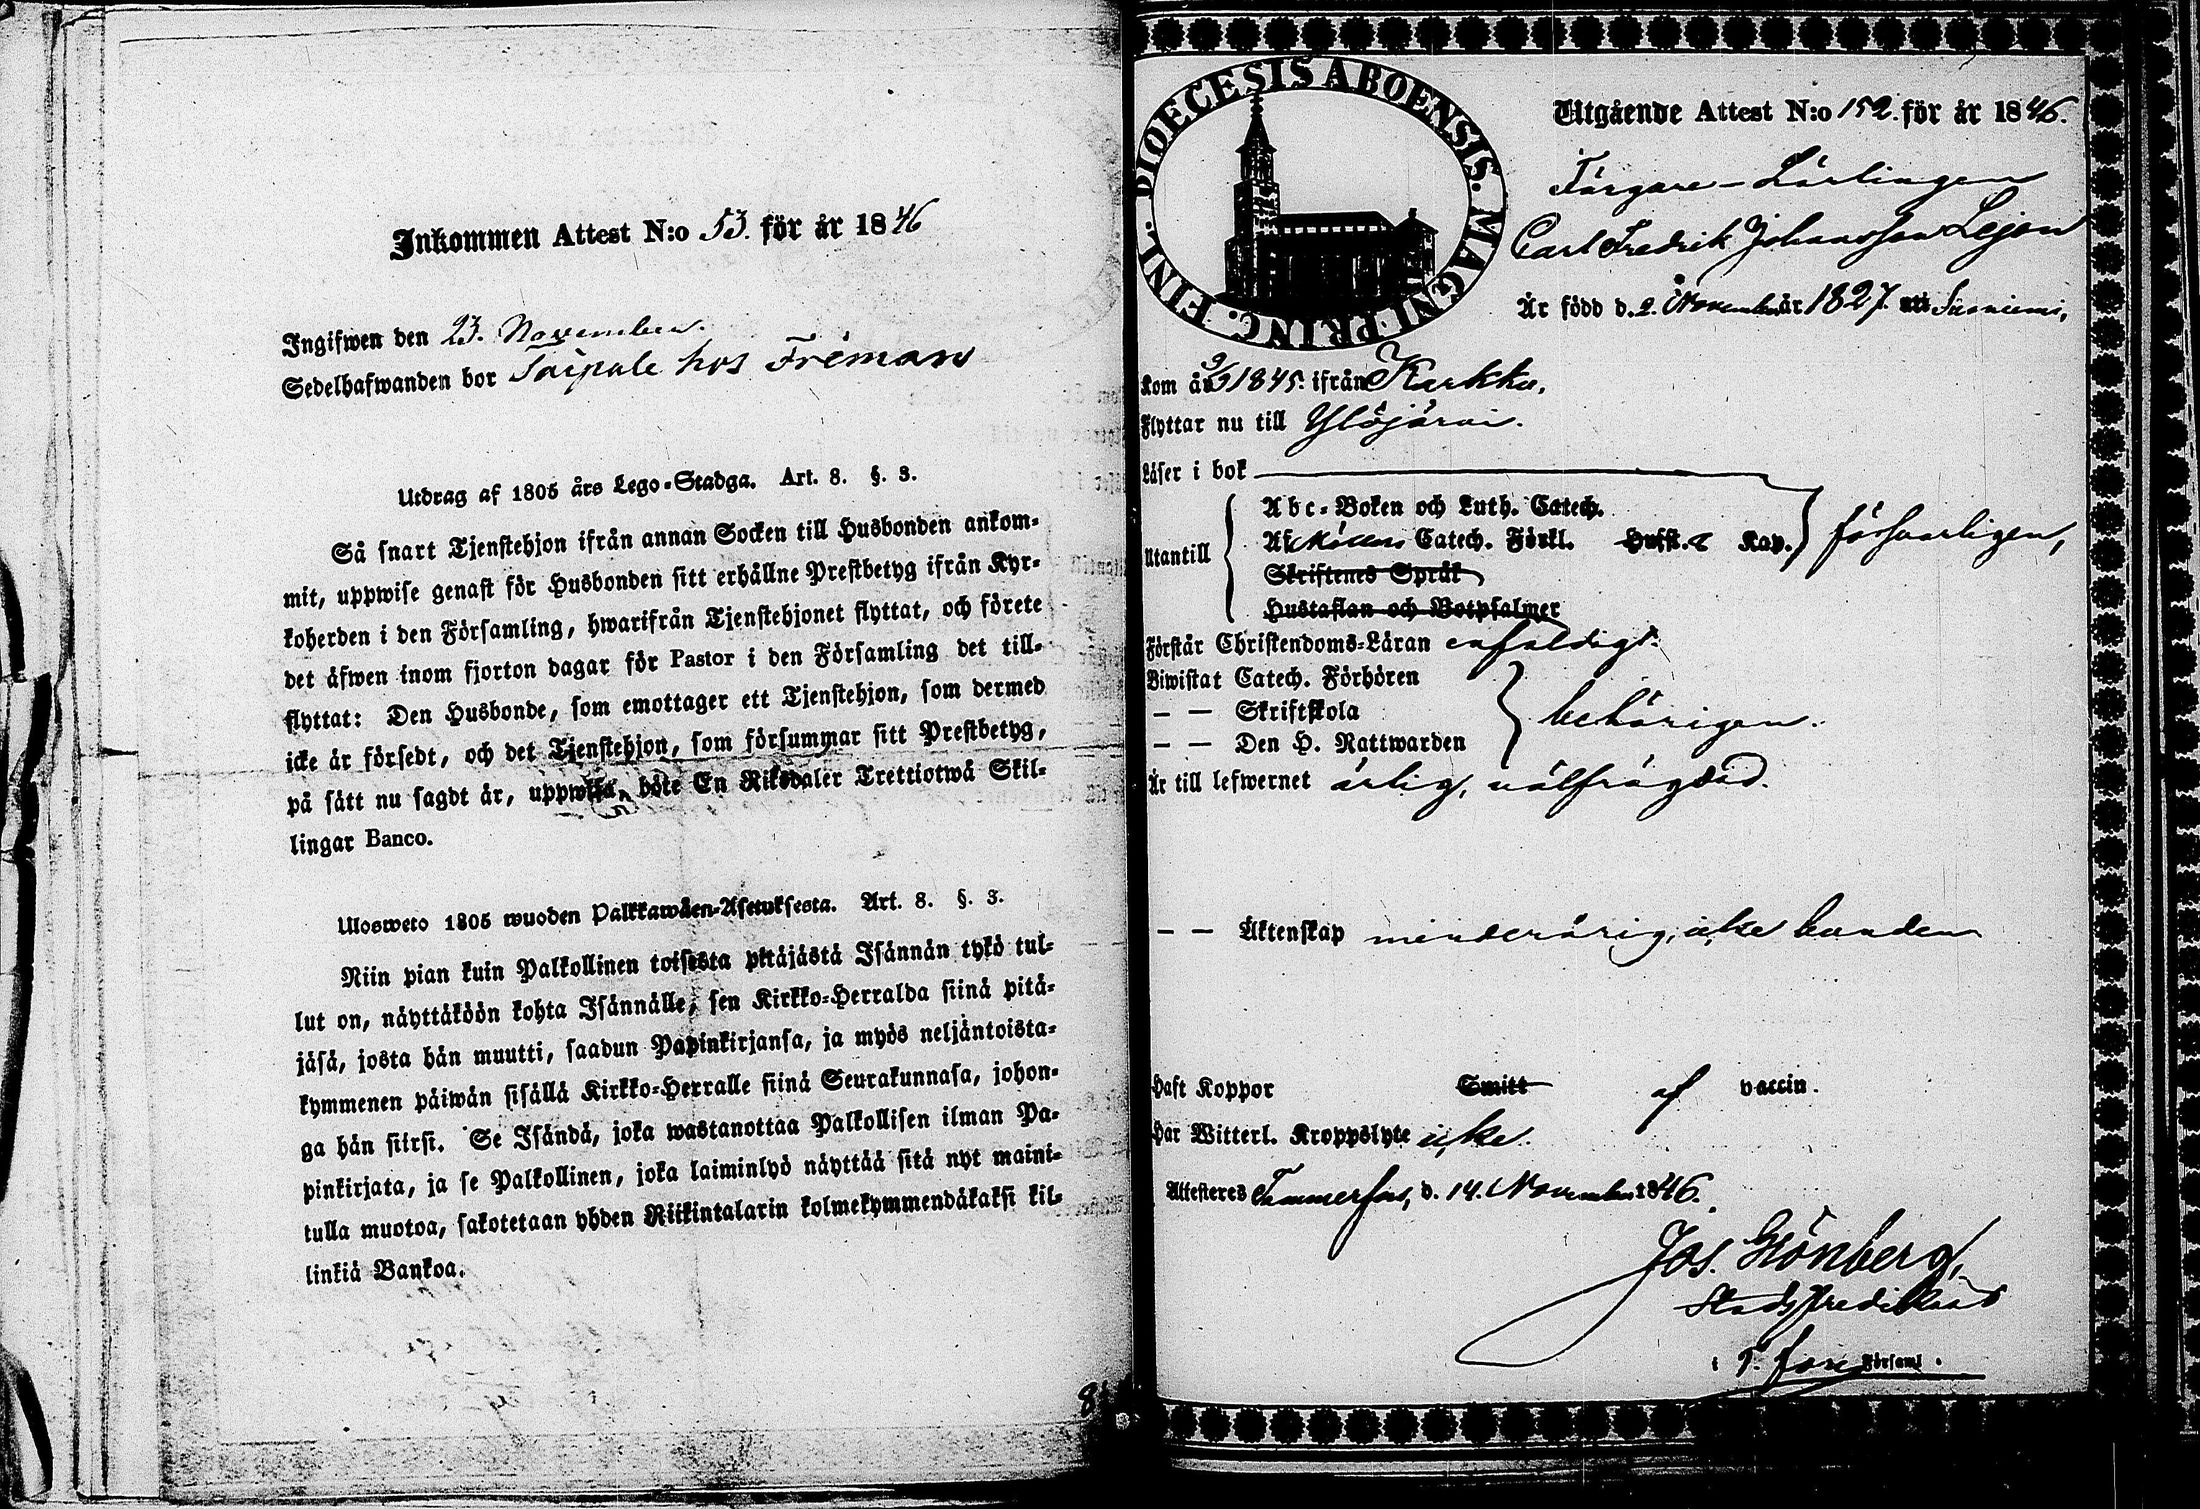 Inkommen Attest N:o 53. för år 1846
Ingifwen den 23. November.
Sedelhafwanden bor Taipale hos Fréman
Utdrag af 1805 års Lego-Stadga. Art. 8. §. 3.
Så snart Tjenstehjon ifrån annan Socken till Husbonden ankom-
mit, uppwise genast för Husbonden sitt erhållne Prestbetyg ifrån Kyr-
koherden i den Församling, hwarifrån Tjenstehjonet flyttat, och förete
det äfwen inom fjorton dagar för Pastor i den Församling det till-
flyttat: Den Husbonde, som emottager ett Tjenstehjon, som dermed
icke är försedt, och det Tjenstehjon, som försummar sitt Prestbetyg,
på sätt nu sagdt är, uppwisa, böte En Riksdaler Trettiotwå Skil-
lingar Banco.
Ulosweto 1805 wuoden Palkkawäen-Asetuksesta. Art. 8. §. 3.
Niin pian kuin Palkollinen toisesta pitäjästä Isännän tykö tul-
lut on, näyttäköön kohta Isännälle, sen Kirkko-Herralda siinä pitä-
jäsä, josta hän muutti, saadun Papinkirjansa, ja myös neljäntoista-
kymmenen päiwän sisällä Kirkko-Herralle siinä Seurakunnasa, johon-
ga hän siirsi. Se Isändä, joka wastanottaa Palkollisen ilman Pa-
pinkirjata, ja se Palkollinen, joka laiminlyö näyttää sitä nyt maini-
tulla muotoa, sakotetaan yhden Riikintalarin kolmekymmendäkaksi kil-
linkiä Bankoa.
8
DIOECESIS ABOENSIS. MAGNI PRINC. FINL.
Utgående Attest N:o 152. för år 1846.
Färgare-Lärlingen
Carl Fredrik Johansson Lejon
Är född d. 2. November år 1827. uti Suoniemi,
Kom år 3/9 1845. ifrån Karkku,
Flyttar nu till Ylöjärvi.
Läser i bok
Utantill
Abc-Boken och Luth. Catech.
Af Möllers Catech. Förkl. Husst. Kap. försvarligen,
Skriftenes Språk
Hustaflan och Botpsalmer
Förstår Christendoms-Läran enfaldigt.
Biwistat Catech. Förhören
— — Skriftskola behörigen.
— — Den H. Nattwarden
Är till lefwernet ärlig, välfrägdad.
— — Äktenskap minderårig, icke bunden
Haft Koppor Smitt af vaccin.
Har Witterl. Kroppslyte icke.
Attesteres Tammerfors, d. 14. November 1846.
Jos. Grönberg,
Stadspredikant
i T. fors Församl.